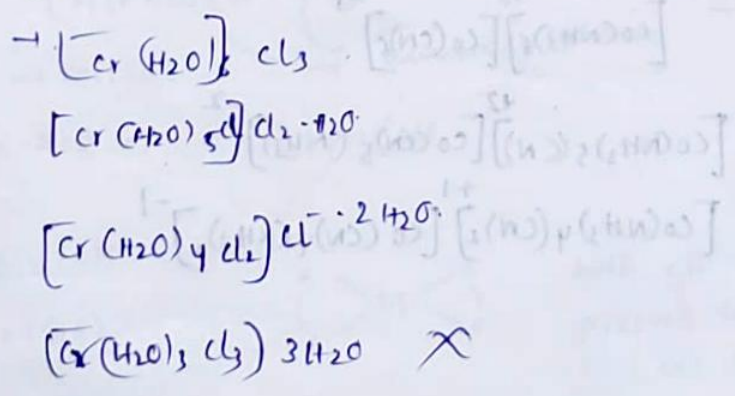 → [Cr (H2O)]6 Cl3
[Cr (H2O)5Cl]Cl2 · H2O
[Cr (H2O)4 Cl2] Cl⁻ · 2 H2O
[Cr (H2O)3 Cl3) 3H2O X